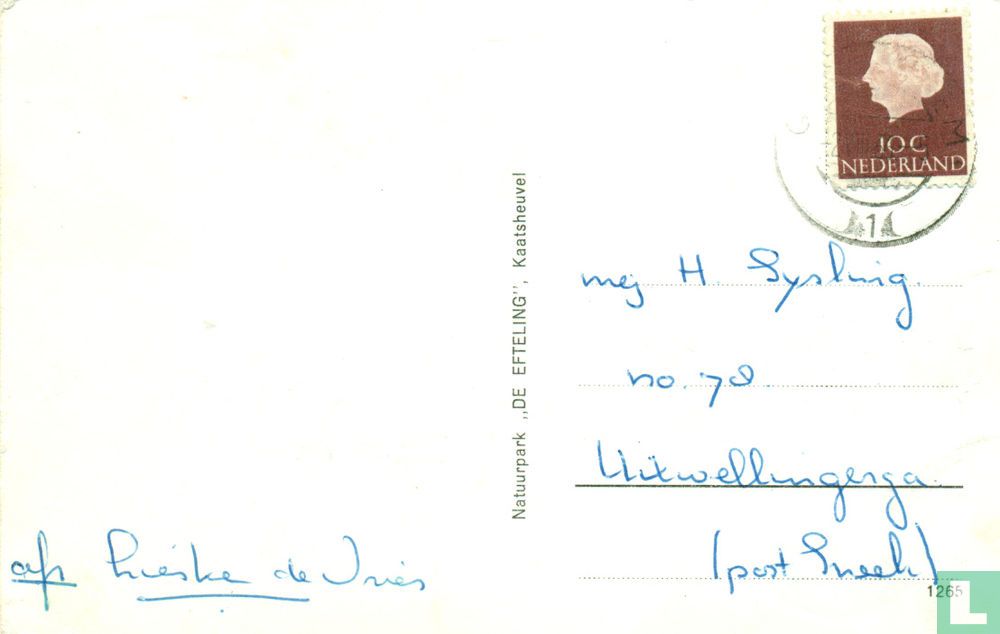 10 C
NEDERLAND
1
Natuurpark „DE EFTELING”, Kaatsheuvel
mej H. Sysling.
no. 78.
Uitwellingerga.
(post Sneek)
afz Lieske de Vries
1265
L